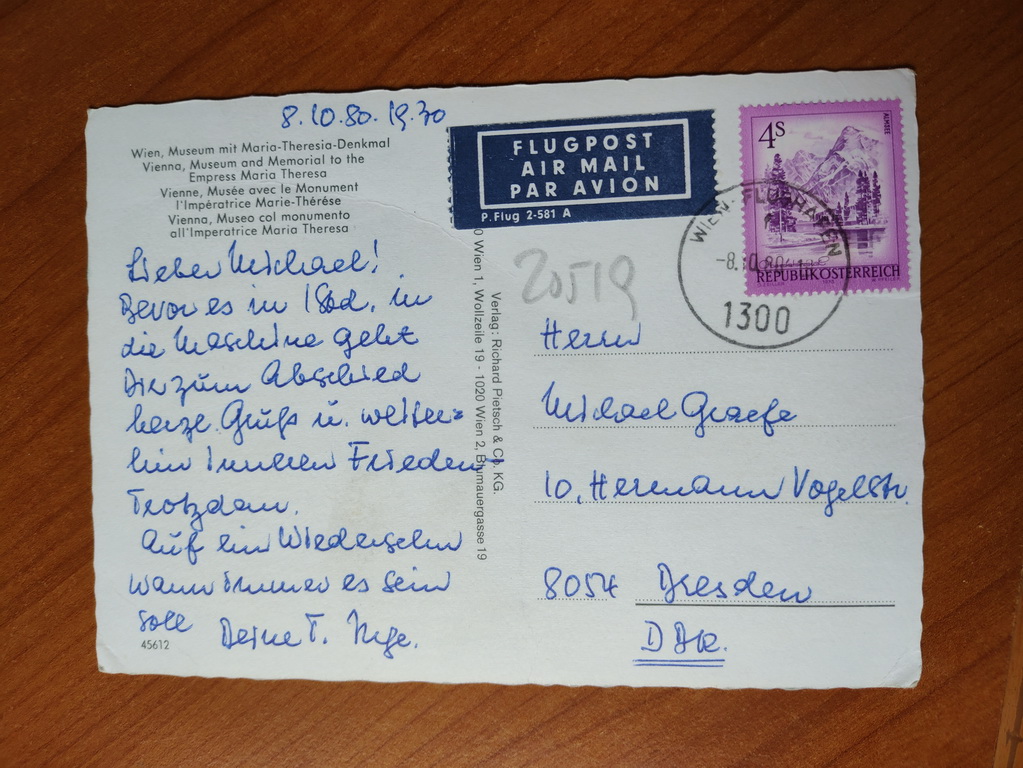 8.10.80. 19.30
Wien, Museum mit Maria-Theresia-Denkmal
Vienna, Museum and Memorial to the
Empress Maria Theresa
Vienne, Musée avec le Monument
l'Impératrice Marie-Thérèse
Vienna, Museo col monumento
all'Imperatrice Maria Theresa
Lieber Michael!
Bevor es in 1 Std. in
die Maschine geht
Dir zum Abschied
herzl. Gruß u. weiter=
hin inneren Frieden
Trotzdem.
Auf ein Wiedersehn
wann immer es sein
soll
Deine T. Inge.
45612
Verlag: Richard Pietsch & Co. KG.
0 Wien 1, Wollzeile 19 - 1020 Wien 2, Blumauergasse 19
FLUGPOST
AIR MAIL
PAR AVION
P. Flug 2-581 A
4S
ALMSEE
REPUBLIK ÖSTERREICH
WIEN-FLUGHAFEN
-8.10.80
1300
20519
Herrn
Michael Graefe
10, Hermann Vogelstr.
8054 Dresden
DDR.